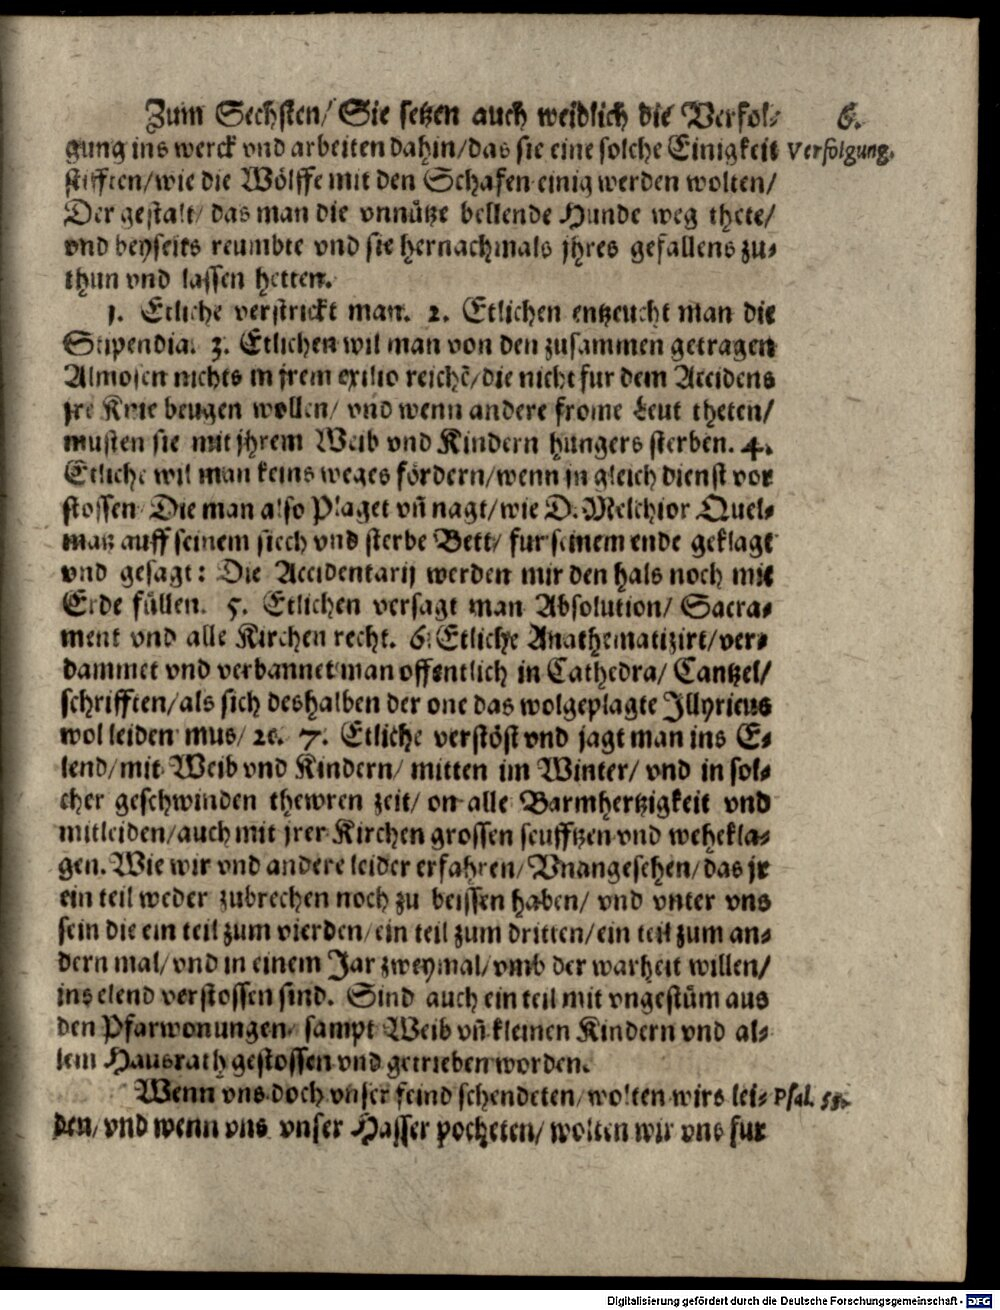 Zum Sechsten/ Sie setzen auch weidlich die Verfol-
6.
gung ins werck vnd arbeiten dahin/das sie eine solche Einigkeit
Verfolgung.
stifften/wie die Wölffe mit den Schafen einig werden wolten/
Der gestalt/ das man die vnnütze bellende Hunde weg thete/
vnd beyseits reumbte vnd sie hernachmals jhres gefallens zu-
thun vnd lassen hetten.
1. Etliche verstrickt man. 2. Etlichen entzeucht man die
Stipendia. 3. Etlichen wil man von den zusammen getragen
Almosen nichts in jrem exilio reichē/die nicht fur dem Accidens
jre Knie beugen wollen/ vnd wenn andere frome Leut theten/
musten sie mit jhrem Weib vnd Kindern hungers sterben. 4.
Etliche wil man keins weges fördern/wenn jn gleich dienst vor
stossen Die man also Plaget vn̄ nagt/wie D. Melchior Quel-
maz auff seinem siech vnd sterbe Bett/ fur seinem ende geklagt
vnd gesagt: Die Accidentarij werden mir den hals noch mit
Erde füllen. 5. Etlichen versagt man Absolution/ Sacra-
ment vnd alle Kirchen recht. 6. Etliche Anathematizirt/ver-
dammet vnd verbannet man offentlich in Cathedra/ Cantzel/
schrifften/als sich deshalben der one das wolgeplagte Jllyricus
wol leiden mus/ ꝛc. 7. Etliche verstöst vnd jagt man ins E-
lend/mit Weib vnd Kindern/ mitten im Winter/ vnd in sol-
cher geschwinden thewren zeit/ on alle Barmhertzigkeit vnd
mitleiden/auch mit jrer Kirchen grossen seufftzen vnd wehekla-
gen. Wie wir vnd andere leider erfahren/Vnangesehen/das jr
ein teil weder zubrechen noch zu beissen haben/ vnd vnter vns
sein die ein teil zum vierden/ein teil zum dritten/ein teil zum an-
dern mal/vnd in einem Jar zweymal/vmb der warheit willen/
ins elend verstossen sind. Sind auch ein teil mit vngestüm aus
den Pfarwonungen/ sampt Weib vn̄ kleinen Kindern vnd al-
lem Hausrath gestossen vnd getrieben worden.
Wenn vns doch vnser feind schendeten/wolten wirs lei-
Psal. 55.
den/vnd wenn vns vnser Hasser pocheten/ wolten wir vns fur
Digitalisierung gefördert durch die Deutsche Forschungsgemeinschaft - DFG